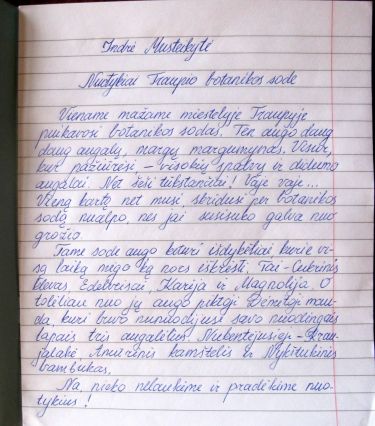 Indrė Musteikytė
Nuotykiai Traupio botanikos sode
Viename mažame miestelyje Traupyje
puikavosi botanikos sodas. Ten augo daug
daug augalų, margų margumynas. Visur,
kur pažiūrėsi – visokių spalvų ir didumo
augalai. Net šeši tūkstančiai! Vaje vaje...
Vieną kartą net musė, skridusi per botanikos
sodą nualpo, nes jai susisuko galva nuo
grožio.
Tame sode augo keturi išdykėliai kurie vi-
są laiką mėgo ką nors iškrėsti. Tai -
Edelveisai, Karija ir Magnolija. O
toliliau nuo jų augo piktoji Dėmėtoji mau-
da, kuri buvo nunuodijusi savo nuodingais
lapais tris augalėlius Nukentėjusieji -
Amūrinis kamštelis ir Nykštukinis
bambukas.
Na, nieko nelaukime ir pradėkime nuo-
tykius!